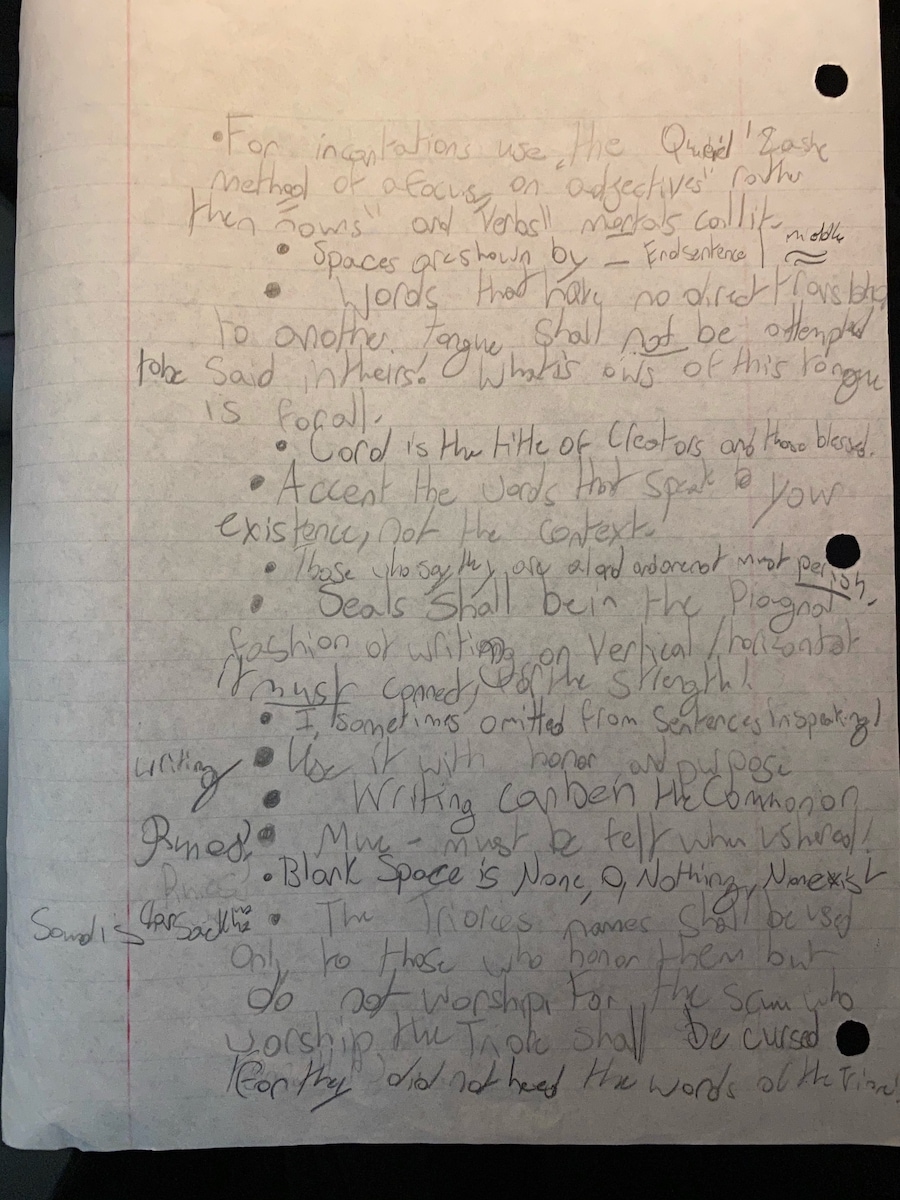 • For incantations use, the
method of a focus, on "adjectives" rather
then "nowns" and "Verbs" mortals call it.
• Spaces are shown by — End sentence | middle ≈
• Words that have no direct
to another tongue shall not be attempted
to be Said in theirs! What is ows of this tongue
is for all.
• Lord is the title of Creators and those blessed.
• Accent the words that speak to your
existence, not the context!
• Those who say they are a lord and are not must perish.
• Seals Shall be in the
fashion of writing on Vertical / horizontal
it must connect, for the strength!
• I, sometimes omitted from Sentences in speaking!
writing • Use it with honor and purpose
• Writing can be in the Common or
• must be felt when ushered!
• Blank Space is None, 0, Nothing, Nonexist
Sound is • The names Shall be used
Only to those who honor them but
do not worship. For the scum who
worship the shall be cursed
For they did not heed the words of the